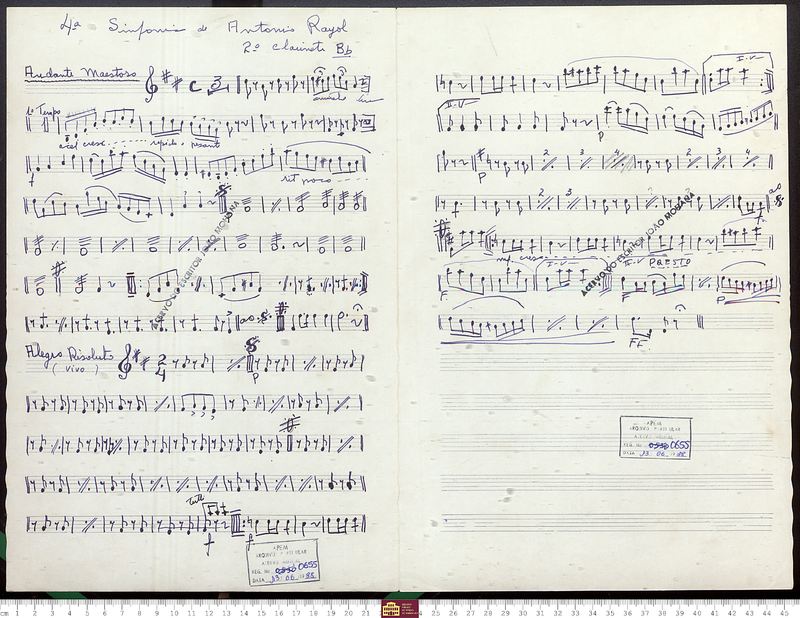 4ª Sinfonia de Antonio Rayol
2º Clarinete Bb
Andante Maestoso
1º Tempo
acel cresc. rapido e pesante
f
rit poco
ACERVO DO ESCRITOR JOÃO MOHANA
Alegro Risoluto
(vivo)
2
4
p
Tutti
f f
APEM
ARQUIVO MUSICAL
REG. No. 0655
DATA 13.06.1988
I.V
I.V
P
P
2 3 4 2 3 4
f
2 3
ao
ACERVO DO ESCRITOR JOÃO MOHANA
mf cresc
I.V I.V PRESTO
F P
FF
APEM
ARQUIVO MUSICAL
REG. No. 0655
DATA 13.06.1988
cm 1 2 3 4 5 6 7 8 9 10 11 12 13 14 15 16 17 18 19 20 21 25 26 27 28 29 30 31 32 33 34 35 36 37 38 39 40 41 42 43 44 45